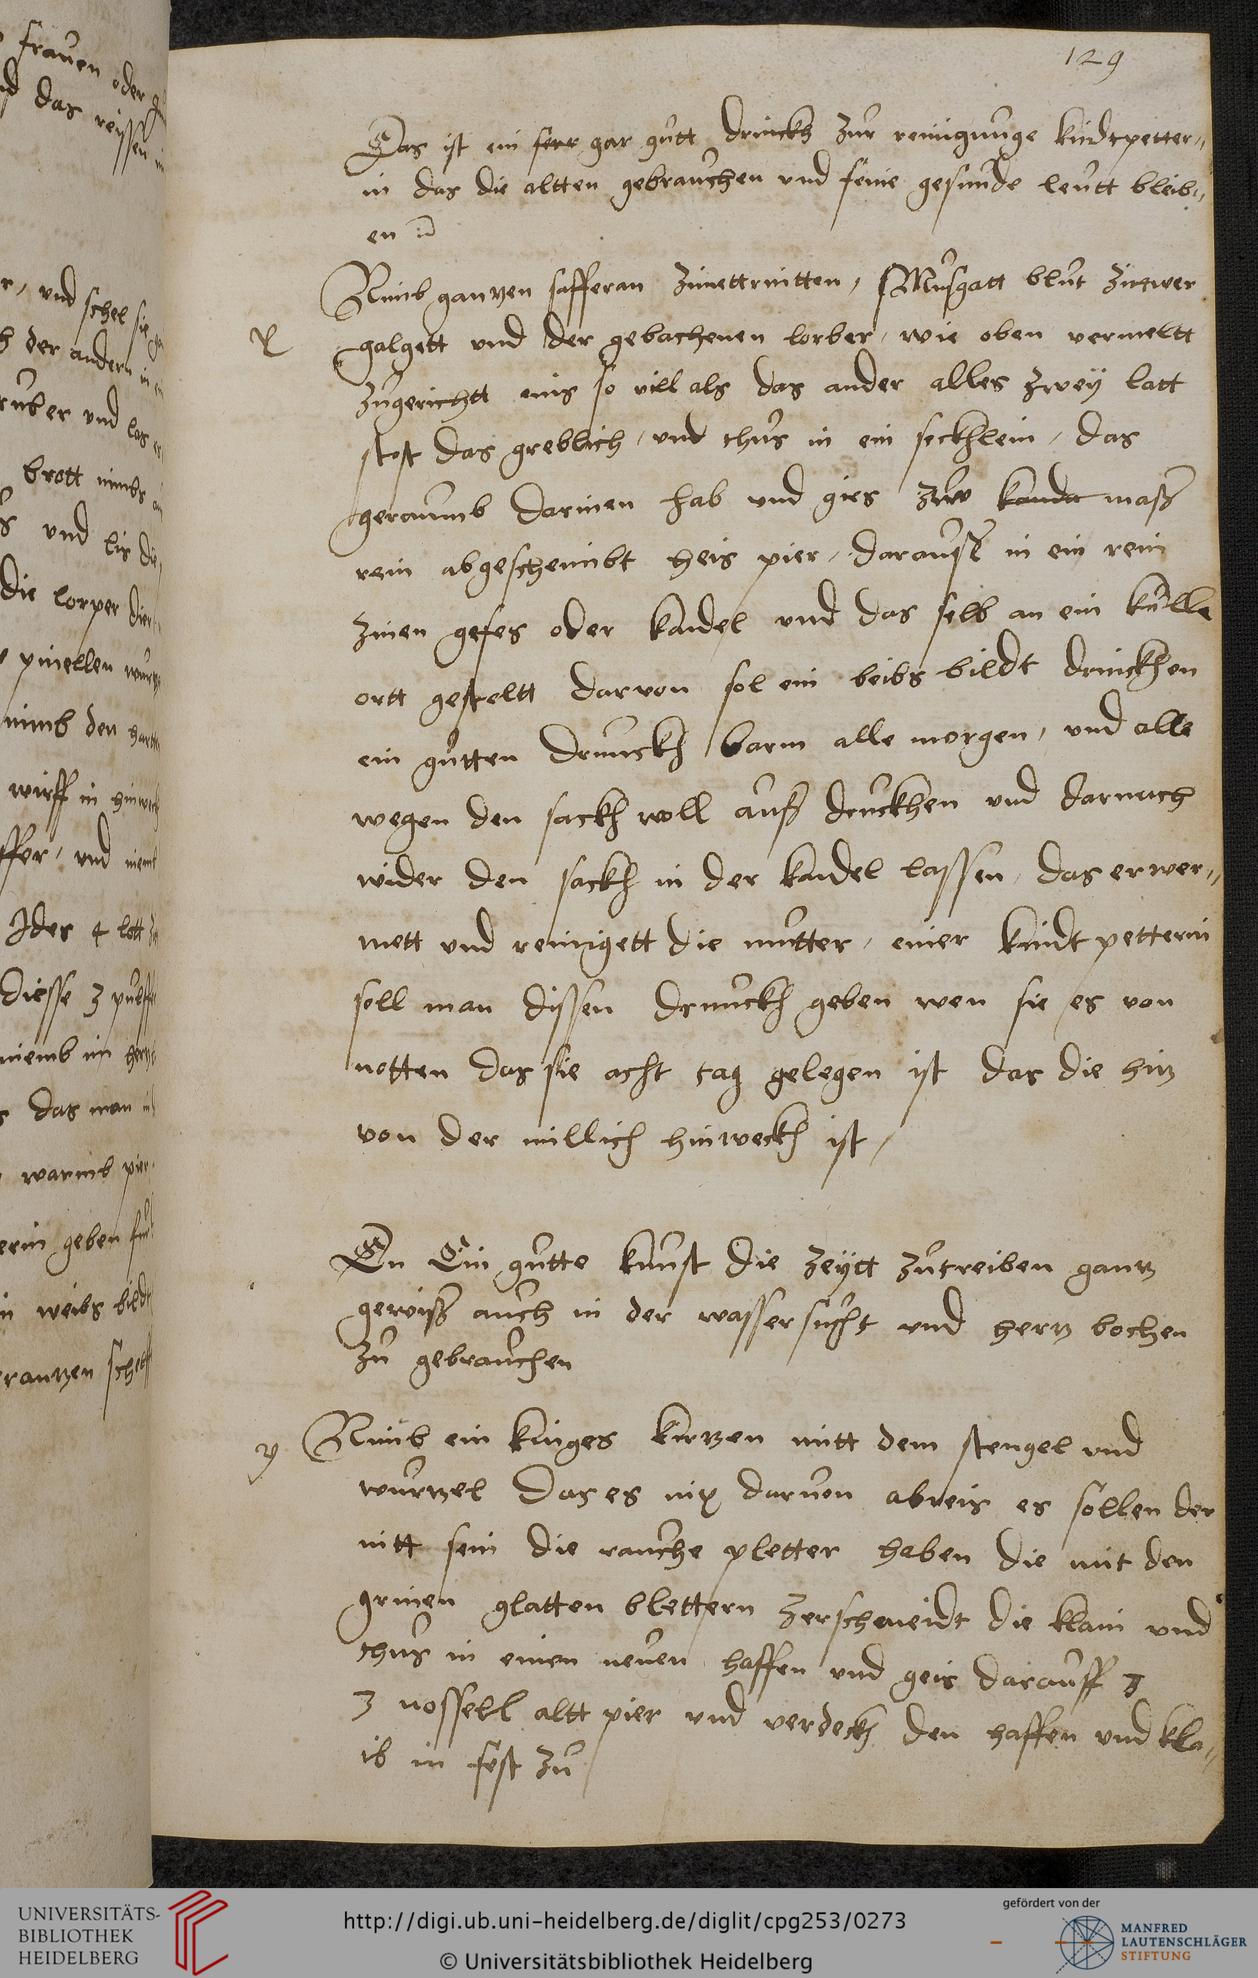 129
Das ist ein ferr gar gutt drinckh zur reinigunge kindtpetter„
in das die altten gebrauchen und feine gesunde leutt bleib„
en
Nimb gantzen safferan zimettrintten, Musgatt blut zittwer
galgett und der gebachenen lorber, wie oben vermeltt
zugerichtt eins so vill als das ander alles zwey latt
stost das greblich, und thus in ein seckhlein, das
geraumb darinen hab und gies zwo kanda maß
rein abgescheimbt heis pier, darauff in ein rein
zinen gefes oder kandel und das selb an ein kulle
ortt gesteltt darvon sol ein beibs bildt drinckhen
ein gutten drunckh barm alle morgen, und alle
wegen den sackh woll auß druckhen und darnach
wider den sackh in der kandel lassen, das erwer„
mett und reinigett die mutter, einer kindt petterin
soll man dissen drunckh geben wen sie es von
notten das sie acht tag gelegen ist das die hitz
von der millich hinweckh ist,
En Ein gutte kunst die zeytt zutreiben gantz
gewiß auch in der wassersucht und hertz bochen
zu gebrauchen
Nimb ein kinges kertzen mitt dem stengel und
wurtzel das es nix darvon abreis es sollen der
nitt sein die rauche pletter haben die mit den
grinen glatten blettern zerschneidt die klain und
thus in einen neuen haffen und geis darauff 3
3 nossell altt pier und verdeckh den haffen und kla„
ib in fest zu
frauen oder
das reissen
und schel sie
der andern in
uber und las
brott nimbs
und lis die
die lorper
pinellen wurtz
nimb den
wirff in
und niemb
Ider 4 lott
diesse 3 pulff
niemb im
das man in
warmb pier
erin geben
weibs bildt
UNIVERSITÄTS-
BIBLIOTHEK
HEIDELBERG
http://digi.ub.uni-heidelberg.de/diglit/cpg253/0273
© Universitätsbibliothek Heidelberg
gefördert von der
MANFRED
LAUTENSCHLÄGER
STIFTUNG